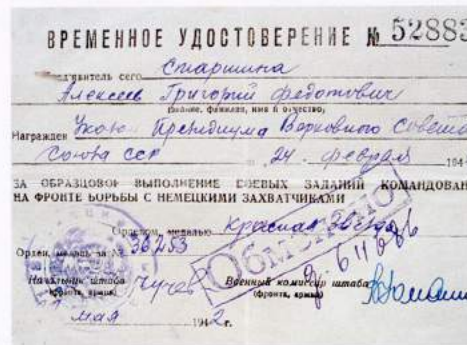 ВРЕМЕННОЕ УДОСТОВЕРЕНИЕ № 52883
Предъявитель сего Старшина
Алексеев Григорий Федотович
(звание, фамилия, имя и отчество)
Награжден Указом Президиума Верховного Совета
Союза ССР 24. февраля 194
ЗА ОБРАЗЦОВОЕ ВЫПОЛНЕНИЕ БОЕВЫХ ЗАДАНИЙ КОМАНДОВАН
НА ФРОНТЕ БОРЬБЫ С НЕМЕЦКИМИ ЗАХВАТЧИКАМИ
Орденом, медалью Красная Звезда
Орден, медаль за № 36253
Обменено
Начальник штаба
(фронта, армии)
Военный комиссар штаба
(фронта, армии)
мая 1942 г.